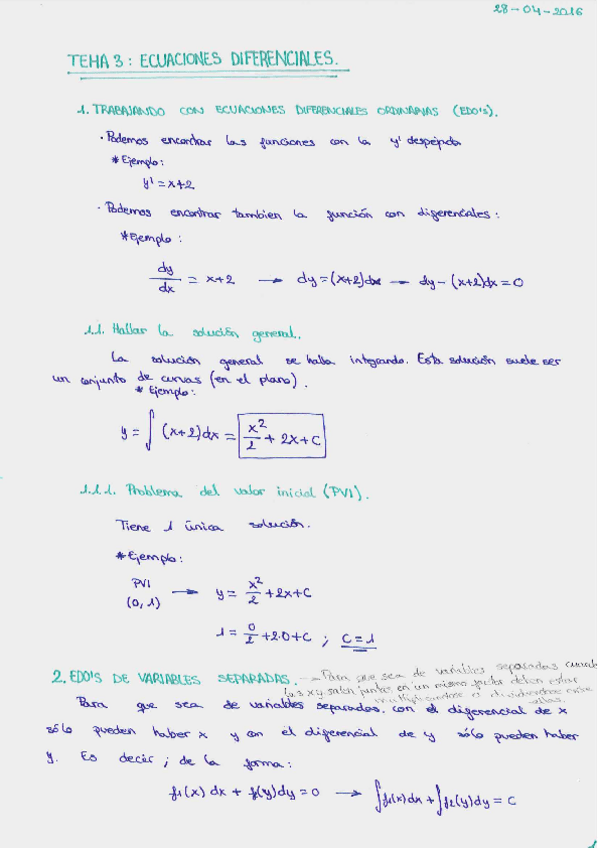 28-04-2016
TEMA 3: ECUACIONES DIFERENCIALES.
1. TRABAJANDO CON ECUACIONES DIFERENCIALES ORDINARIAS (EDO'S).
· Podemos encontrar las funciones con la y' despejada
* Ejemplo:
y' = x+2
· Podemos encontrar tambien la función con diferenciales:
* Ejemplo:
dy/dx = x+2 → dy = (x+2)dx → dy - (x+2)dx = 0
1.1. Hallar la solución general.
La solución general se halla integrando. Esta solución suele ser
un conjunto de curvas (en el plano).
* Ejemplo:
y = ∫ (x+2)dx = x²/2 + 2x + C
1.1.1. Problema del valor inicial (PVI).
Tiene 1 única solución.
* Ejemplo:
PVI → y = x²/2 + 2x + C
(0, 1)
1 = 0/2 + 2·0 + C ; C = 1
2. EDO'S DE VARIABLES SEPARADAS. → Para que sea de variables separadas cuando
las x y salen juntas en un mismo factor deben estar
multiplicandose o dividiendose entre
ellas.
Para que sea de variables separadas, con el diferencial de x
sólo pueden haber x y con el diferencial de y sólo pueden haber
y. Es decir; de la forma:
f1(x) dx + f(y)dy = 0 → ∫f1(x)dx + ∫f2(y)dy = C
1